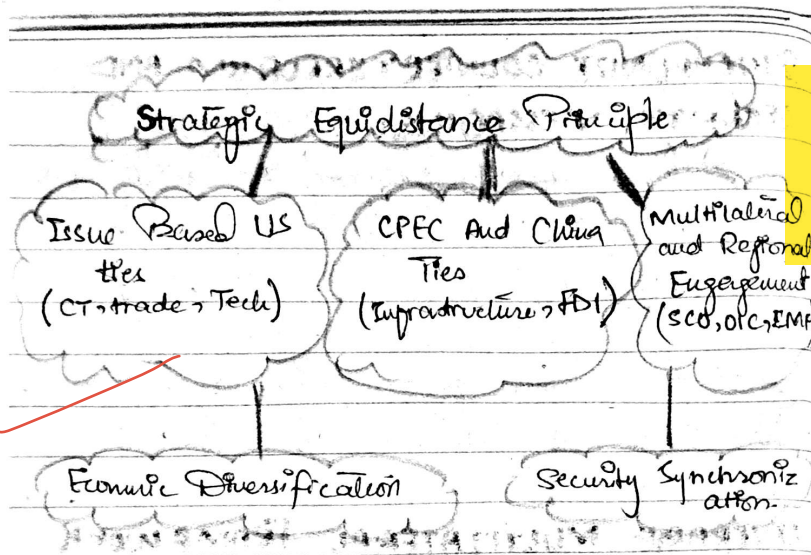 Strategic Equidistance Principle
Issue Based US
ties
(CT, trade, Tech)
CPEC And China
Ties
(Infrastructure, FDI)
Multilateral
and Regional
Engergement
(SCO, OIC, EMP
Economic Diversification
Security Synchroniz
ation.